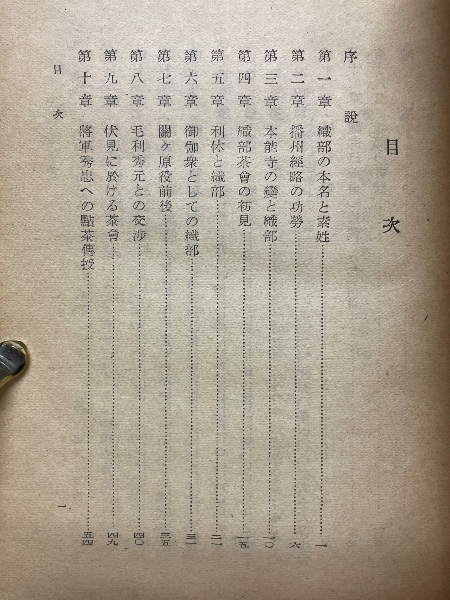 目次
序説
第一章 織部の本名と素姓 一
第二章 播州經略の功勞 六
第三章 本能寺の變と織部 一〇
第四章 織部茶會の初見 一五
第五章 利休と織部 二一
第六章 御伽衆としての織部 三一
第七章 關ヶ原役前後 三五
第八章 毛利秀元との交渉 四〇
第九章 伏見に於ける茶會 四九
第十章 將軍秀忠への點茶傳授 五四
目次 一